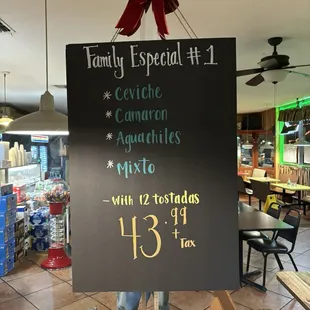 Family Especial #1
* Ceviche
* Camaron
* Aguachiles
* Mixto
- With 12 tostadas
43.99
+ Tax